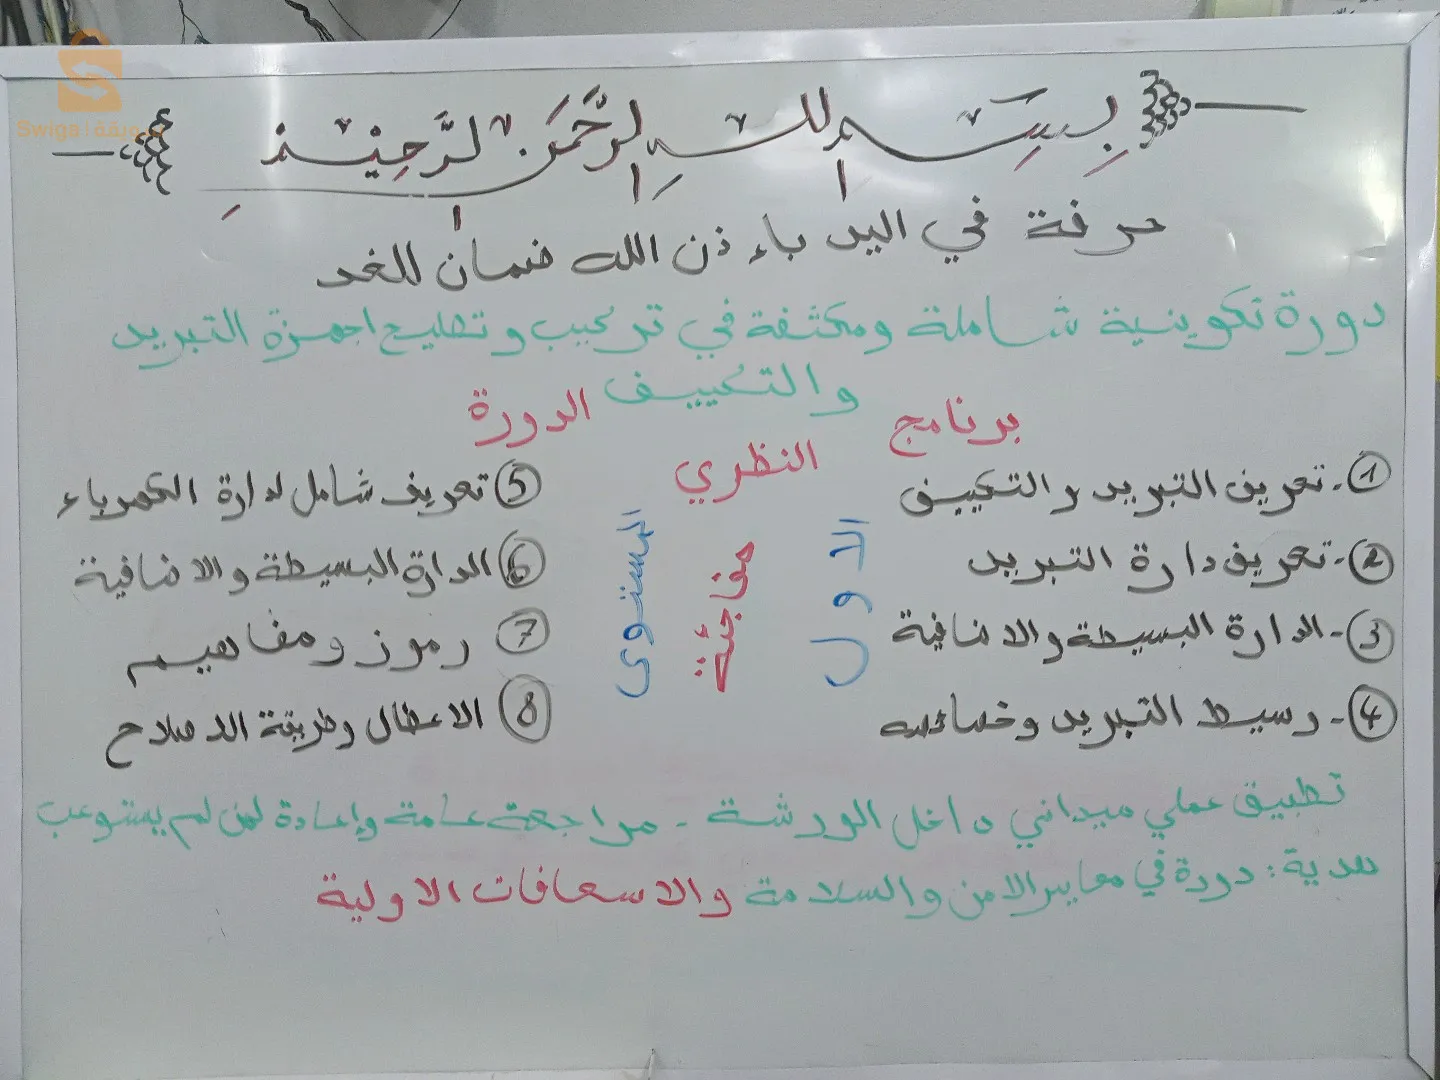 بِسْمِ اللهِ الرَّحْمَنِ الرَّحِيْمِ
حرفة في اليد باء ذن الله ضمان للغد
دورة تكوينية شاملة ومكثفة في تركيب وتصليح اجهزة التبريد
والتكييف
برنامج الدورة
النظري
المستوى الاول
مفاجئة
1 - تعريف التبريد والتكييف
2 - تعريف دارة التبريد
3 - الدارة البسيطة والاضافية
4 - وسيط التبريد وخصائصه
5 تعريف شامل لدارة الكهرباء
6 الدارة البسيطة والاضافية
7 رموز ومفاهيم
8 الاعطال وطريقة الاصلاح
تطبيق عملي ميداني داخل الورشة - مراجعة عامة وإعادة لمن لم يستوعب
هدية: دورة في معايير الامن والسلامة والاسعافات الاولية
Swiga سويقة